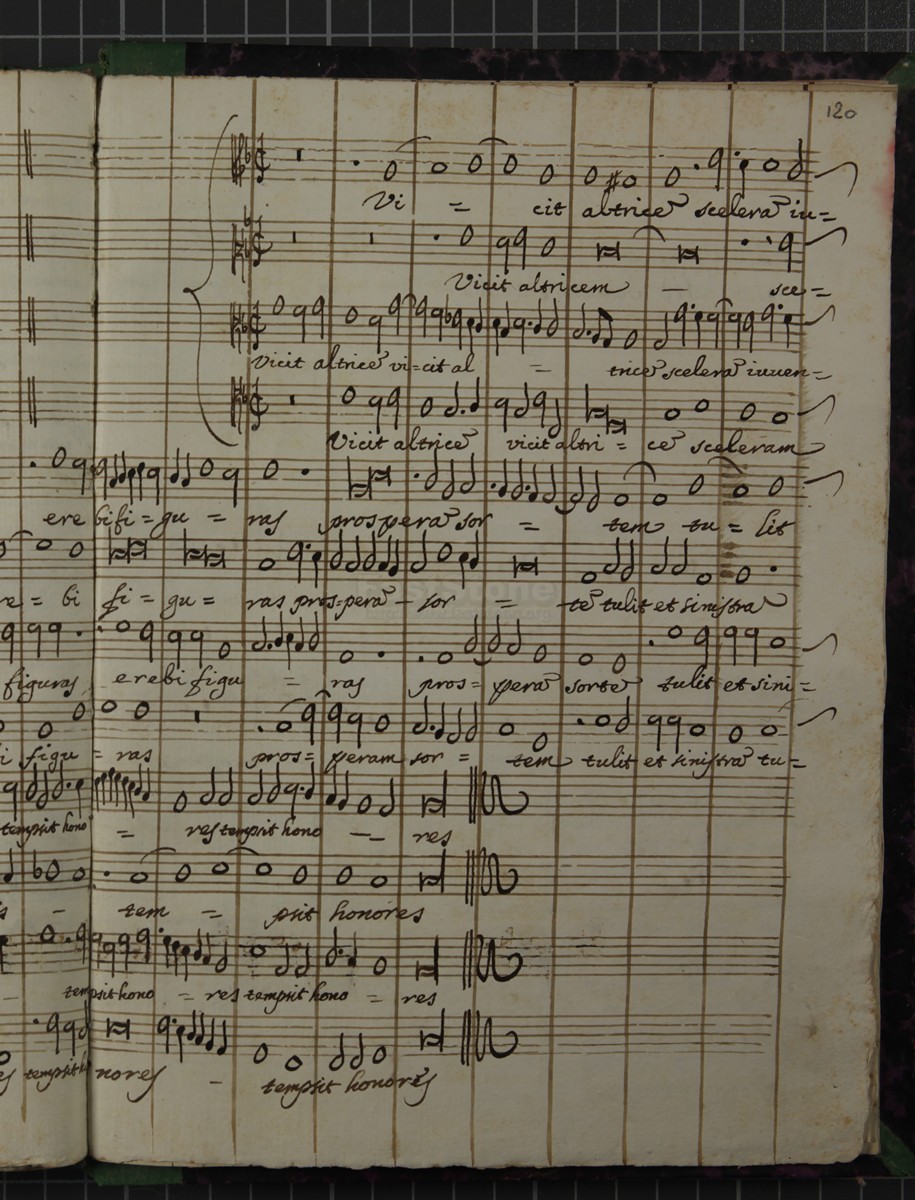 120
Vi = cit altrice͂ scelera͂ iu=
Vicit altricem — sce=
Vicit altrice͂ vi=cit al = trice͂ scelera͂ iuuen=
Vicit altrice͂ vicit altri = ce͂ sceleram
ere bi fi = gu = ras prospera͂ sor = tem tu = lit
re = bi fi = gu = ras pros=pera͂ – sor = te͂ tulit et sinistra
figuras erebi figu = ras pros= pera͂ sorte͂ tulit et sini=
i figu = ras pros= peram sor = tem tulit et sinistra͂ tu=
tempsit hono = res tempsit hono — res
– tem = psit honores
– tempsit hono = res tempsit hono = res
tempsit honores – tempsit honores